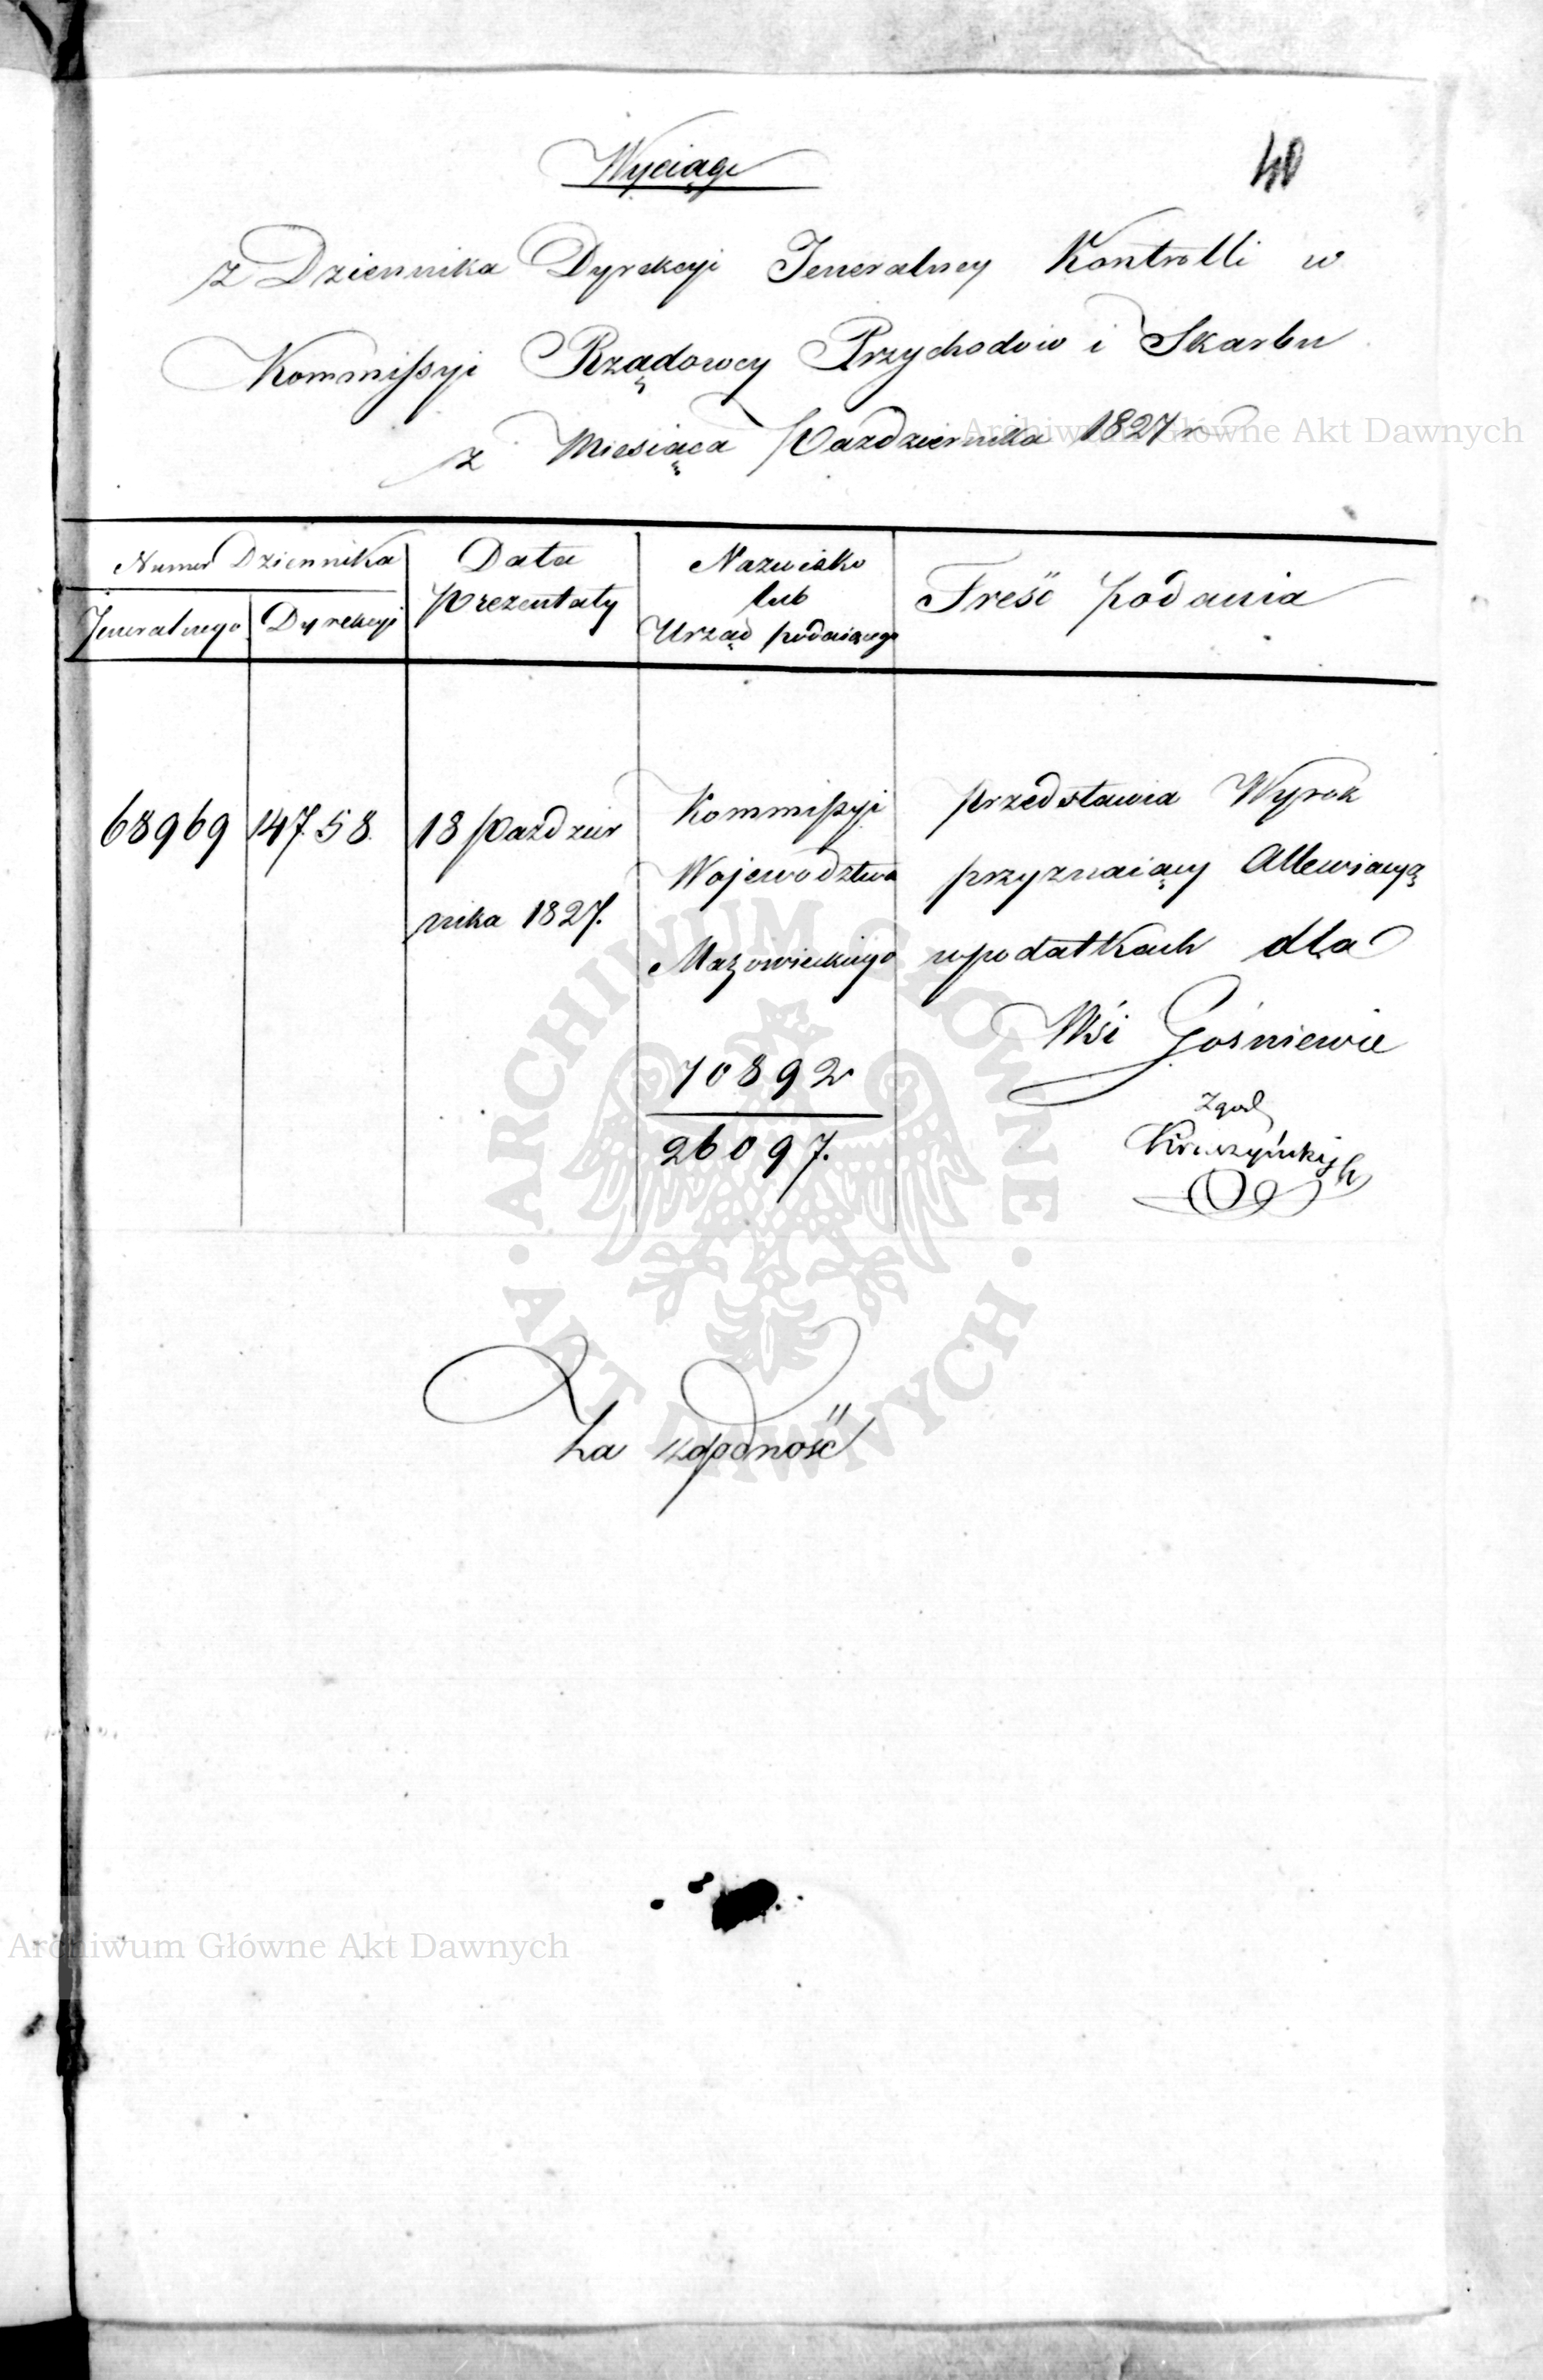 40
Wyciąg
z Dziennika Dyrekcyi Jeneralney Kontrolli w
Kommissyi Rządowey Przychodów i Skarbu
z Miesiąca Października 1827 r
Archiwum Główne Akt Dawnych
Numer Dziennika
Jeneralnego Dyrekcyi
Data
Prezentaty
Nazwisko
lub
Urząd podaiącego
Treść podania
68969
14758.
18 Paździer
nika 1827.
Kommissyi
Województwa
Mazowieckiego
70892
26097.
przedstawia Wyrok
przyznaiący Allewiacyą
w podatkach dla
Wsi Gośniewic
Zgod
Za zgodność
ARCHIWUM GŁÓWNE · AKT DAWNYCH ·
Archiwum Główne Akt Dawnych